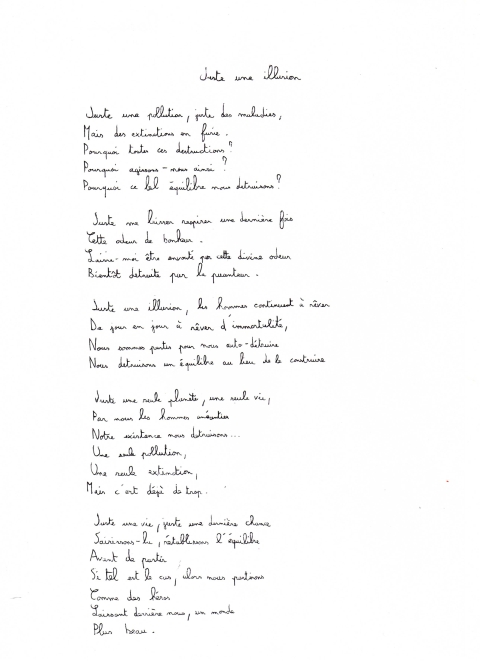 Juste une illusion
Juste une pollution, juste des maladies,
Mais des extinctions en furie.
Pourquoi toutes ces destructions ?
Pourquoi agissons-nous ainsi ?
Pourquoi ce bel équilibre nous detruisons ?
Juste me laisser respirer une dernière fois
Cette odeur de bonheur.
Laisse-moi être envouté par cette divine odeur
Bientôt detruite par la puanteur.
Juste une illusion, les hommes continuent à rêver
De jour en jour à rêver d'immortalité,
Nous sommes partis pour nous auto-détruire
Nous detruisons un équilibre au lieu de le construire
Juste une seule planète, une seule vie,
Par nous les hommes anéanties
Notre existence nous detruisons...
Une seule pollution,
Une seule extinction,
Mais c'est déjà de trop.
Juste une vie, juste une dernière chance
Saisissons-la, rétablissons l'équilibre
Avant de partir
Si tel est le cas, alors nous partirons
Comme des héros
Laissant derrière nous, un monde
Plus beau.